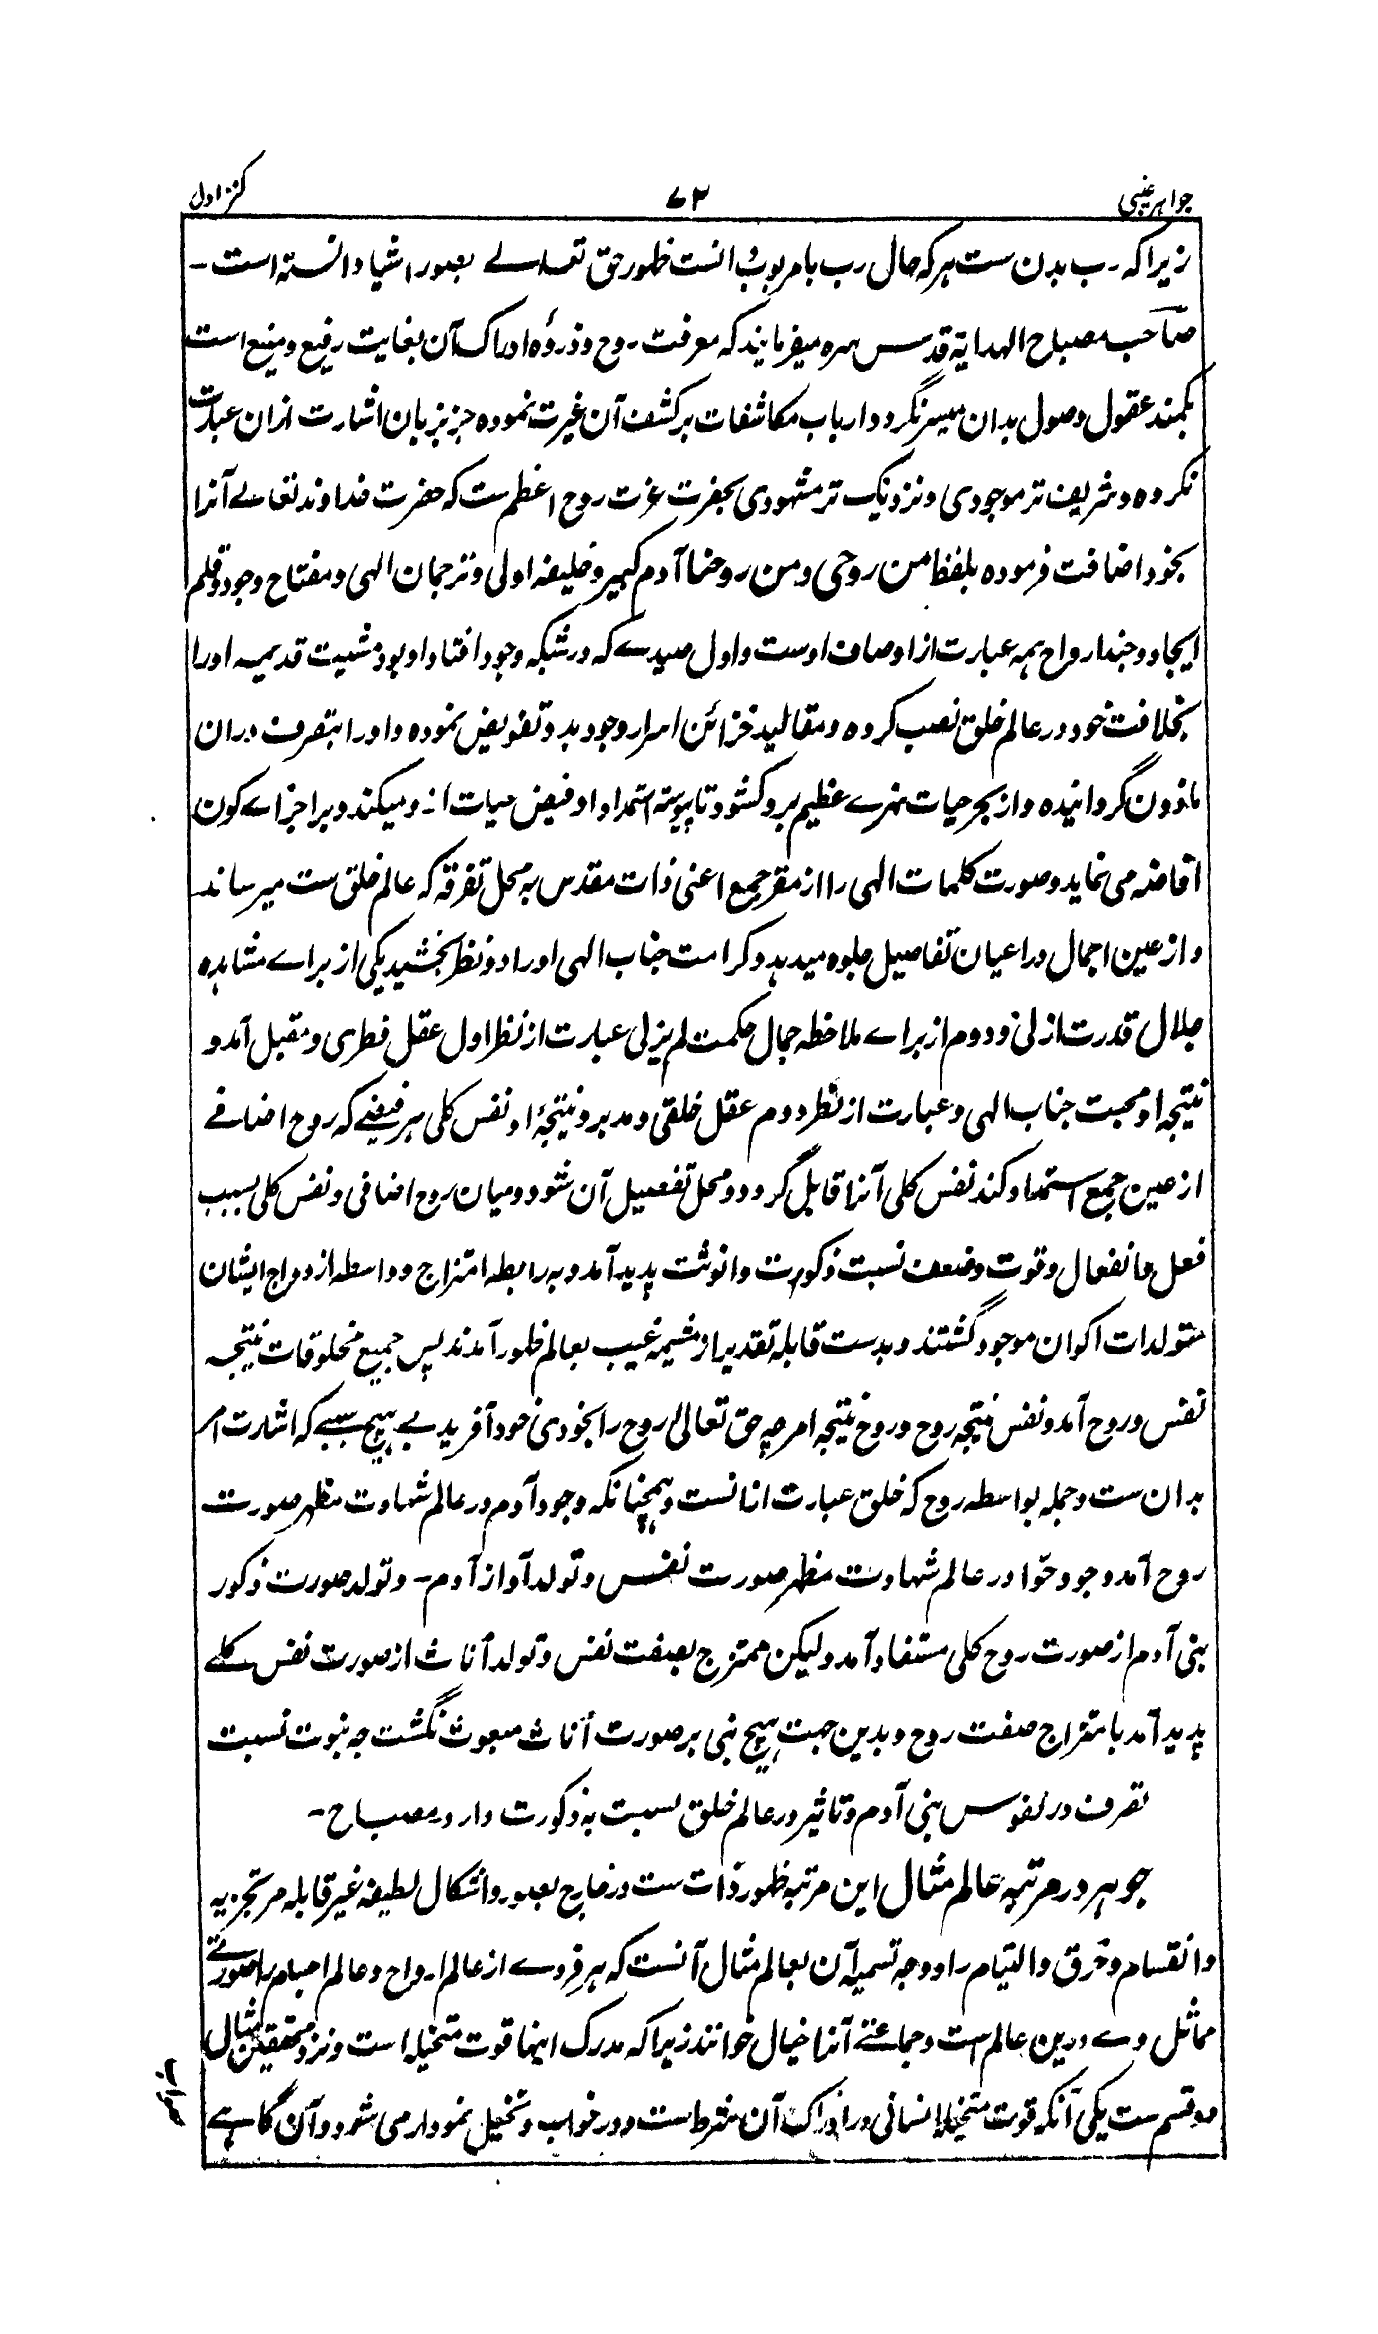 جواہر غیبی
۷۲
کنز اول
زیرا کہ رب بدن ست ہر کہ حال رب با مربوب دانست ظہور حق تعالے بصور اشیا دانستہ است -
صاحب مصباح الہدایۃ قدس سرہ میفرمایند کہ معرفت روح و ذروۂ ادراک آن بغایت رفیع و منیع است
بکمند عقول وصول بدان میسر نگردد ارباب مکاشفات بر کشف آن غیرت نمودہ جز بزبان اشارت ازان عبارت
نکردہ و شریف تر موجودی و نزدیک تر مشہودی بحضرت عزت روح اعظم ست کہ حضرت خداوند تعالے آنرا
بخود اضافت فرمودہ بلفظ من روحی و من روحنا آدم کبیر و خلیفہ اولی و ترجمان الہی و مفتاح وجود و قلم
ایجاد و جند ارواح ہمہ عبارت از اوصاف اوست و اول صیدے کہ در شبکہ وجود افتاد او بود مشیت قدیمہ اورا
بخلافت خود در عالم خلق نصب کردہ و مقالید خزائن اسرار وجود بدو تفویض نمودہ و اورا بتصرف دران
ماذون گردانیدہ و از بحر حیات نہرے عظیم برو کشود تا پیوستہ استمداد او فیض حیات ازو میکند و بر اجزاے کون
افاضہ می نماید و صورت کلمات الہی را از مقر جمع اعنی ذات مقدس بہ محل تفرقہ کہ عالم خلق ست میرساند
و از عین اجمال در اعیان تفاصیل جلوہ میدہد و کرامت جناب الہی اورا دو نظر بخشید یکی از براے مشاہدہ
جلال قدرت ازلی و دوم از براے ملاحظہ جمال حکمت لم یزلی عبارت از نظر اول عقل فطری و مقبل آمد و
نتیجہ او محبت جناب الہی و عبارت از نظر دوم عقل خلقی و مدبر و نتیجۂ او نفس کلی ہر فیضے کہ روح اضافے
از عین جمع استمداد کند نفس کلی آنرا قابل گردد و محل تفصیل آن شود و میان روح اضافی و نفس کلی بسبب
فعل و انفعال و قوت و ضعف نسبت ذکورت و انوثت پدید آمد و بہ رابطہ امتزاج و واسطہ ازدواج ایشان
متولدات اکوان موجود گشتند و بدست قابلہ تقدیر از مشیمہ غیب بعالم ظہور آمدند پس جمیع مخلوقات نتیجہ
نفس و روح آمد و نفس نتیجہ روح و روح نتیجہ امر چہ حق تعالیٰ روح را بخودی خود آفرید بے ہیچ سببے کہ اشارت امر
بدان ست و جملہ بواسطہ روح کہ خلق عبارت ازانست و ہمچنانکہ وجود آدم در عالم شہادت مظہر صورت
روح آمد وجود حوّا در عالم شہادت مظہر صورت نفس و تولد آو از آدم - و تولد صورت ذکور
بنی آدم از صورت روح کلی مستفاد آمد و لیکن ممتزج بصفت نفس و تولد اناث از صورت نفس کلے
پدید آمد با متزاج صفت روح و بدین جہت ہیچ نبی بر صورت اناث مبعوث نگشت چہ نبوت نسبت
تصرف در نفوس بنی آدم و تاثیر در عالم خلق نسبت بہ ذکورت دارد مصباح -
جوہر در مرتبہ عالم مثال این مرتبہ ظہور ذات ست در خارج بصور و اشکال لطیفہ غیر قابلہ مر تجزیہ
و انقسام و خرق و التیام را و وجہ تسمیہ آن بعالم مثال آنست کہ ہر فردے از عالم ارواح و عالم اجسام را صورتے
مماثل وے درین عالم است و جماعتے آنرا خیال خوانند زیرا کہ مدرک اینہا قوت متخیلہ است و نزد محققین مثال
دو قسم ست یکی آنکہ قوت متخیلہ انسانی در ادراک آن شرط ست و در خواب و تخیل نمودار می شود و آن گاہے